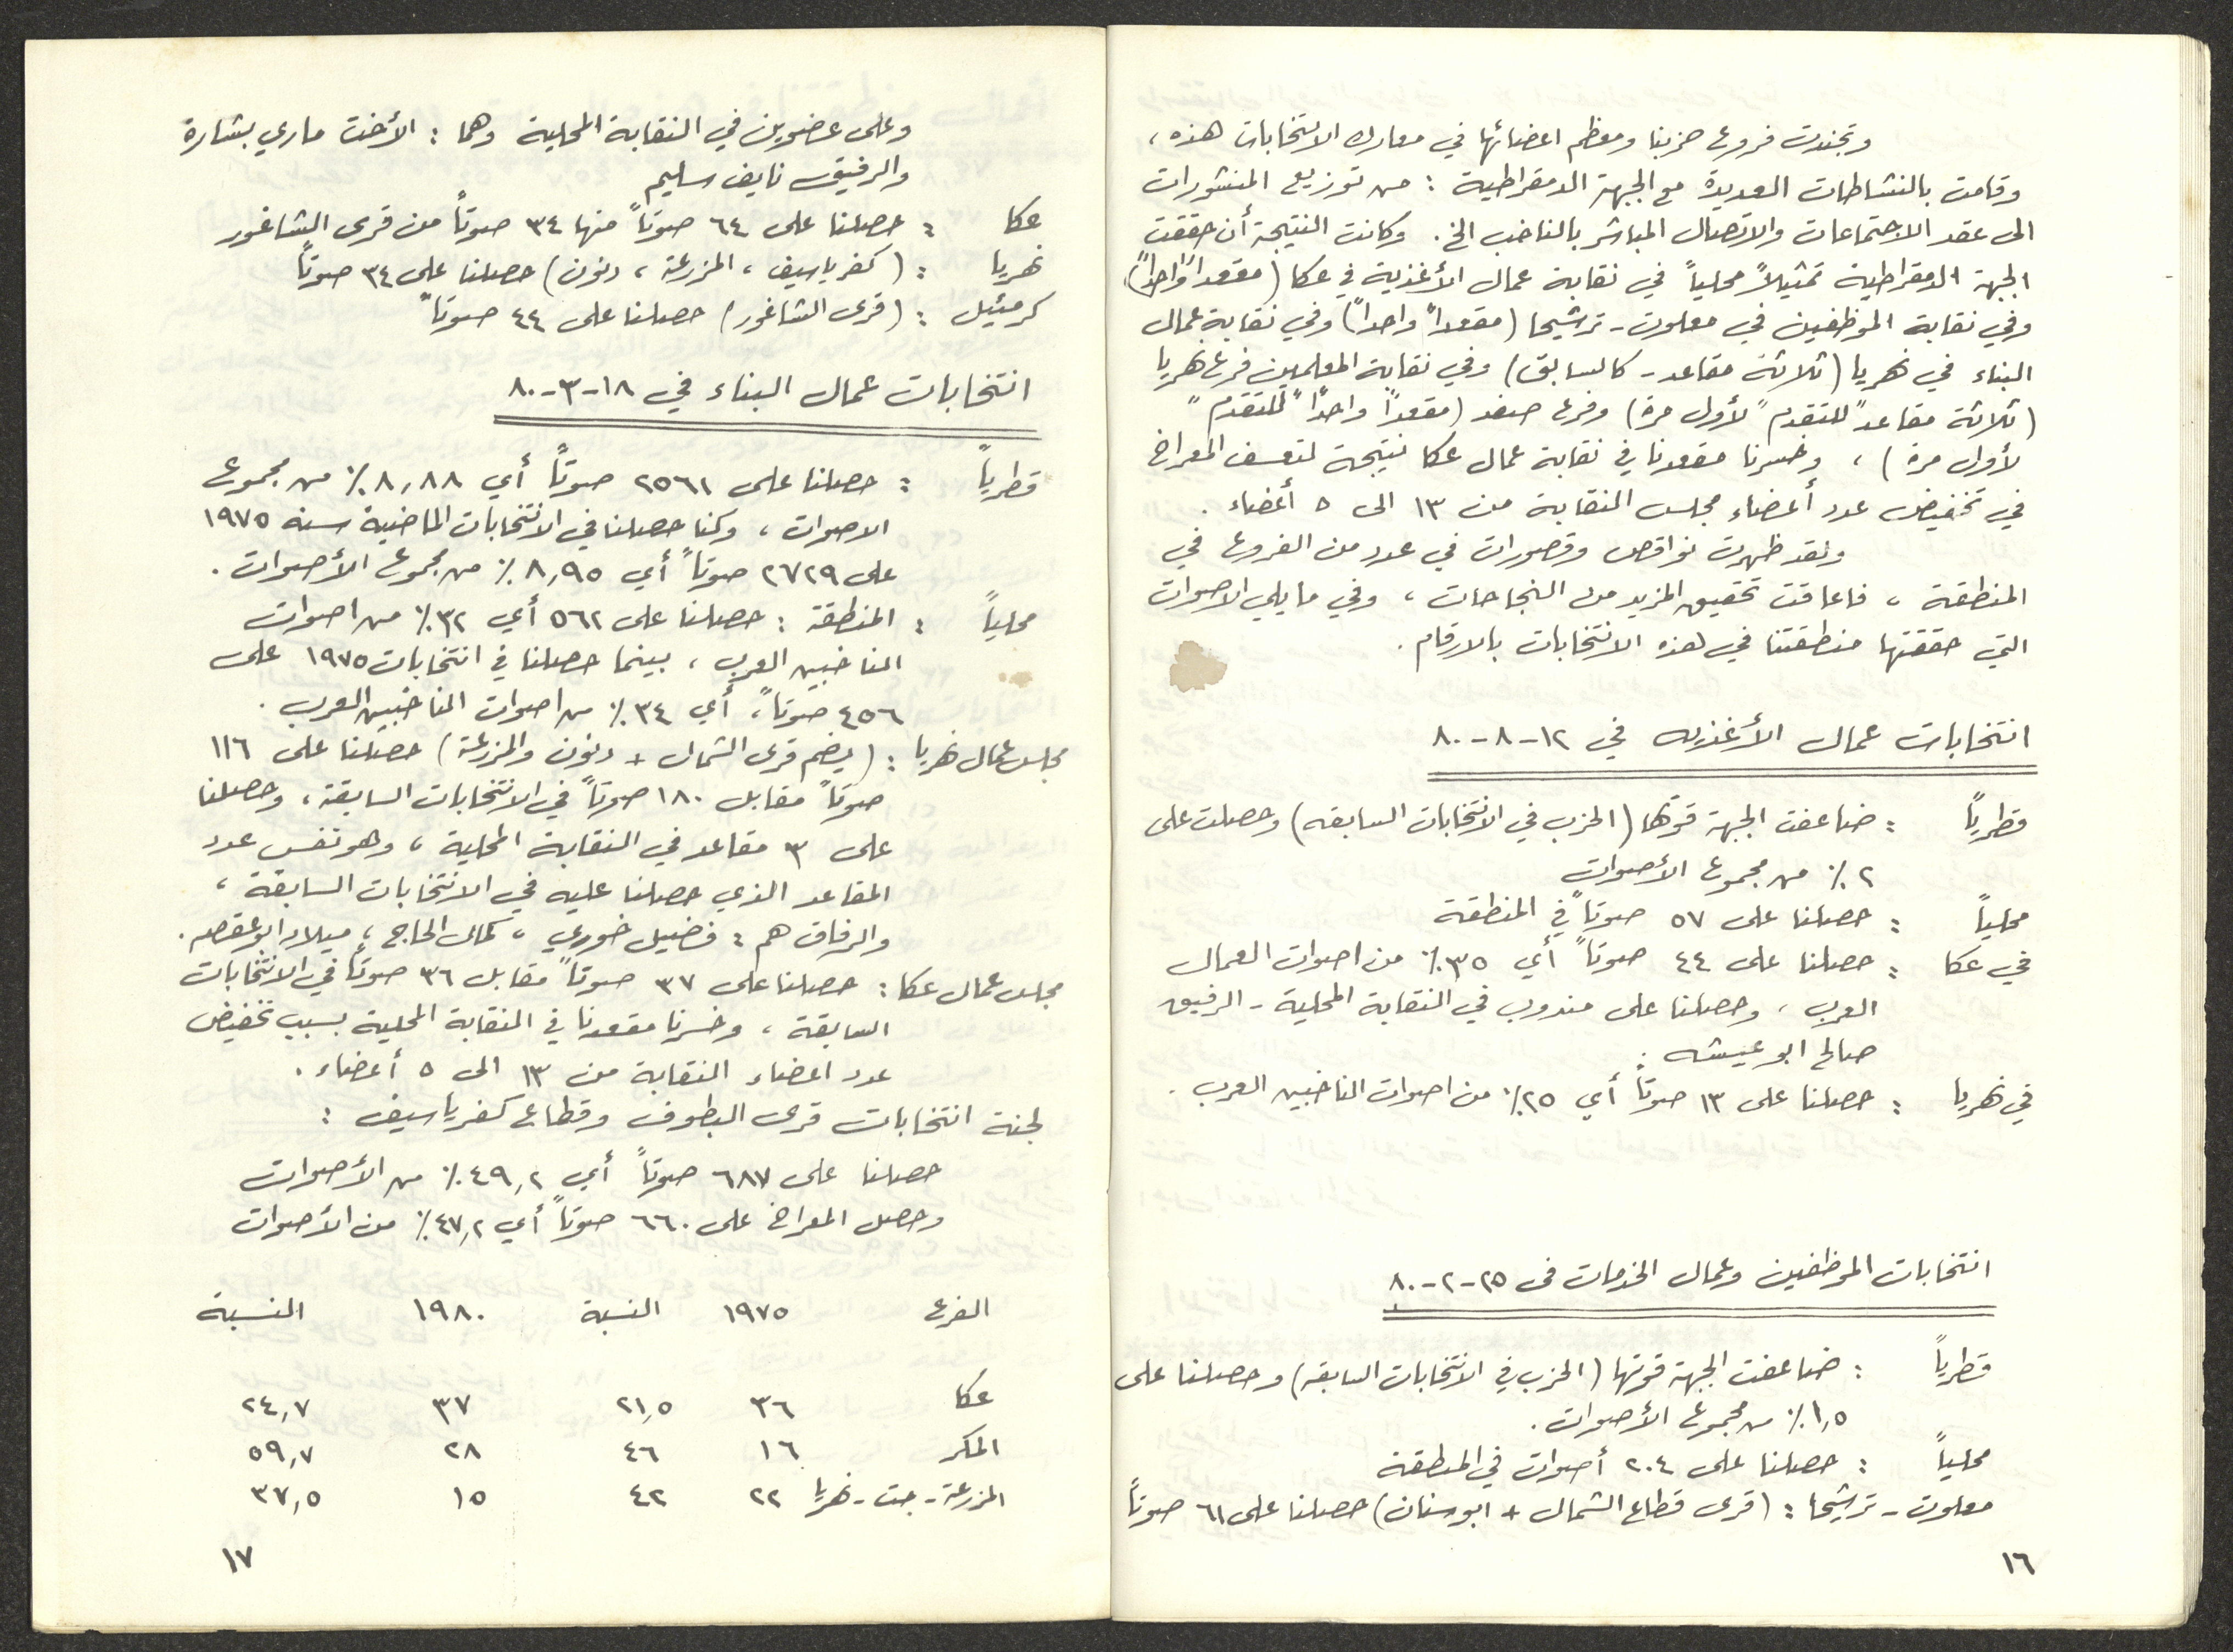 وتجندت فروع حزبنا ومعظم اعضائها في معارك الانتخابات هذه،
وقامت بالنشاطات العديدة مع الجبهة الدمقراطية : من توزيع المنشورات
الى عقد الاجتماعات والاتصال المباشر بالناخب الخ. وكانت النتيجة أن حققت
الجبهة الدمقراطية تمثيلاً محلياً في نقابة عمال الأغذية في عكا (مقعداً واحداً)
وفي نقابة الموظفين في معلوت - ترشيحا (مقعداً واحداً) وفي نقابة عمال
البناء في نهريا (ثلاثة مقاعد - كالسابق) وفي نقابة المعلمين فرع نهريا
(ثلاثة مقاعد "للتقدم" لأول مرة) وفرع صفد (مقعداً واحداً "للتقدم"
لأول مرة) ، وخسرنا مقعدنا في نقابة عمال عكا نتيجة لتعسف المعراخ
في تخفيض عدد أعضاء مجلس النقابة من ١٣ الى ٥ أعضاء.
ولقد ظهرت نواقص وقصورات في عدد من الفروع في
المنطقة ، فاعاقت تحقيق المزيد من النجاحات ، وفي ما يلي الاصوات
التي حققتها منطقتنا في هذه الانتخابات بالارقام.
انتخابات عمال الأغذيه في ١٢-٨-٨٠
قطرياً : ضاعفت الجبهة قوتها (الحزب في الانتخابات السابقه) وحصلت على
٢٪ من مجموع الأصوات
محلياً : حصلنا على ٥٧ صوتاً في المنطقة
في عكا : حصلنا على ٤٤ صوتاً أي ٣٥٪ من اصوات العمال
العرب ، وحصلنا على مندوب في النقابة المحلية - الرفيق
صالح ابو عيشه.
في نهريا : حصلنا على ١٣ صوتاً أي ٢٥٪ من اصوات الناخبين العرب.
انتخابات الموظفين وعمال الخدمات في ٢٥-٢-٨٠
قطرياً : ضاعفت الجبهة قوتها (الحزب في الانتخابات السابقه) وحصلنا على
١,٥٪ من مجموع الأصوات.
محلياً : حصلنا على ٢٠٤ أصوات في المنطقة
معلوت - ترشيحا : (قرى قطاع الشمال + ابو سنان) حصلنا على ٦١ صوتاً
١٦
وعلى عضوين في النقابة المحلية وهما : الأخت ماري بشارة
والرفيق نايف سليم
عكا : حصلنا على ٦٤ صوتاً منها ٣٤ صوتاً من قرى الشاغور
نهريا : (كفر ياسيف ، المزرعة ، دنون) حصلنا على ٣٤ صوتاً
كرمئيل : (قرى الشاغور) حصلنا على ٤٤ صوتاً
انتخابات عمال البناء في ١٨-٣-٨٠
قطرياً : حصلنا على ٢٥٦١ صوتاً أي ٨,٨٨٪ من مجموع
الاصوات ، وكنا حصلنا في الانتخابات الماضية سنه ١٩٧٥
على ٢٧٢٩ صوتاً أي ٨,٩٥٪ من مجموع الأصوات.
محلياً : المنطقة : حصلنا على ٥٦٢ أي ٣٢٪ من اصوات
الناخبين العرب ، بينما حصلنا في انتخابات ١٩٧٥ على
٤٥٦ صوتاً ، أي ٣٤٪ من اصوات الناخبين العرب.
مجلس عمال نهريا : (يضم قرى الشمال + دنون والمزرعة) حصلنا على ١١٦
صوتاً مقابل ١٨٠ صوتاً في الانتخابات السابقة ، وحصلنا
على ٣ مقاعد في النقابة المحلية ، وهو نفس عدد
المقاعد الذي حصلنا عليه في الانتخابات السابقة ،
والرفاق هم : فضيل خوري ، كمال الحاج ، ميلاد ابو عقصه.
مجلس عمال عكا : حصلنا على ٣٧ صوتاً مقابل ٣٦ صوتاً في الانتخابات
السابقة ، وخسرنا مقعدنا في النقابة المحلية بسبب تخفيض
عدد اعضاء النقابة من ١٣ الى ٥ أعضاء.
لجنة انتخابات قرى البطوف وقطاع كفر ياسيف :
حصلنا على ٦٨٧ صوتاً أي ٤٩,٢٪ من الأصوات
وحصل المعراخ على ٦٦٠ صوتاً أي ٤٧,٢٪ من الأصوات
الفرع ١٩٧٥ النسبة ١٩٨٠ النسبة
عكا ٣٦ ٢١,٥ ٣٧ ٢٤,٧
المكر ١٦ ٤٦ ٢٨ ٥٩,٧
المزرعة - جت - نهريا ٢٢ ٤٢ ١٥ ٣٧,٥
١٧